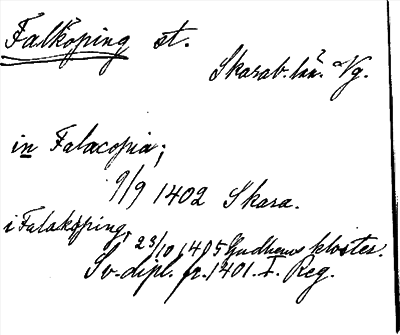 Falköping st.
Skarab. län. Vg.
in Falacopia;
9/9 1402 Skara.
i Falaköping,
23/10 1405 Gudhems kloster.
Sv. dipl. fr. 1401. I. Reg.